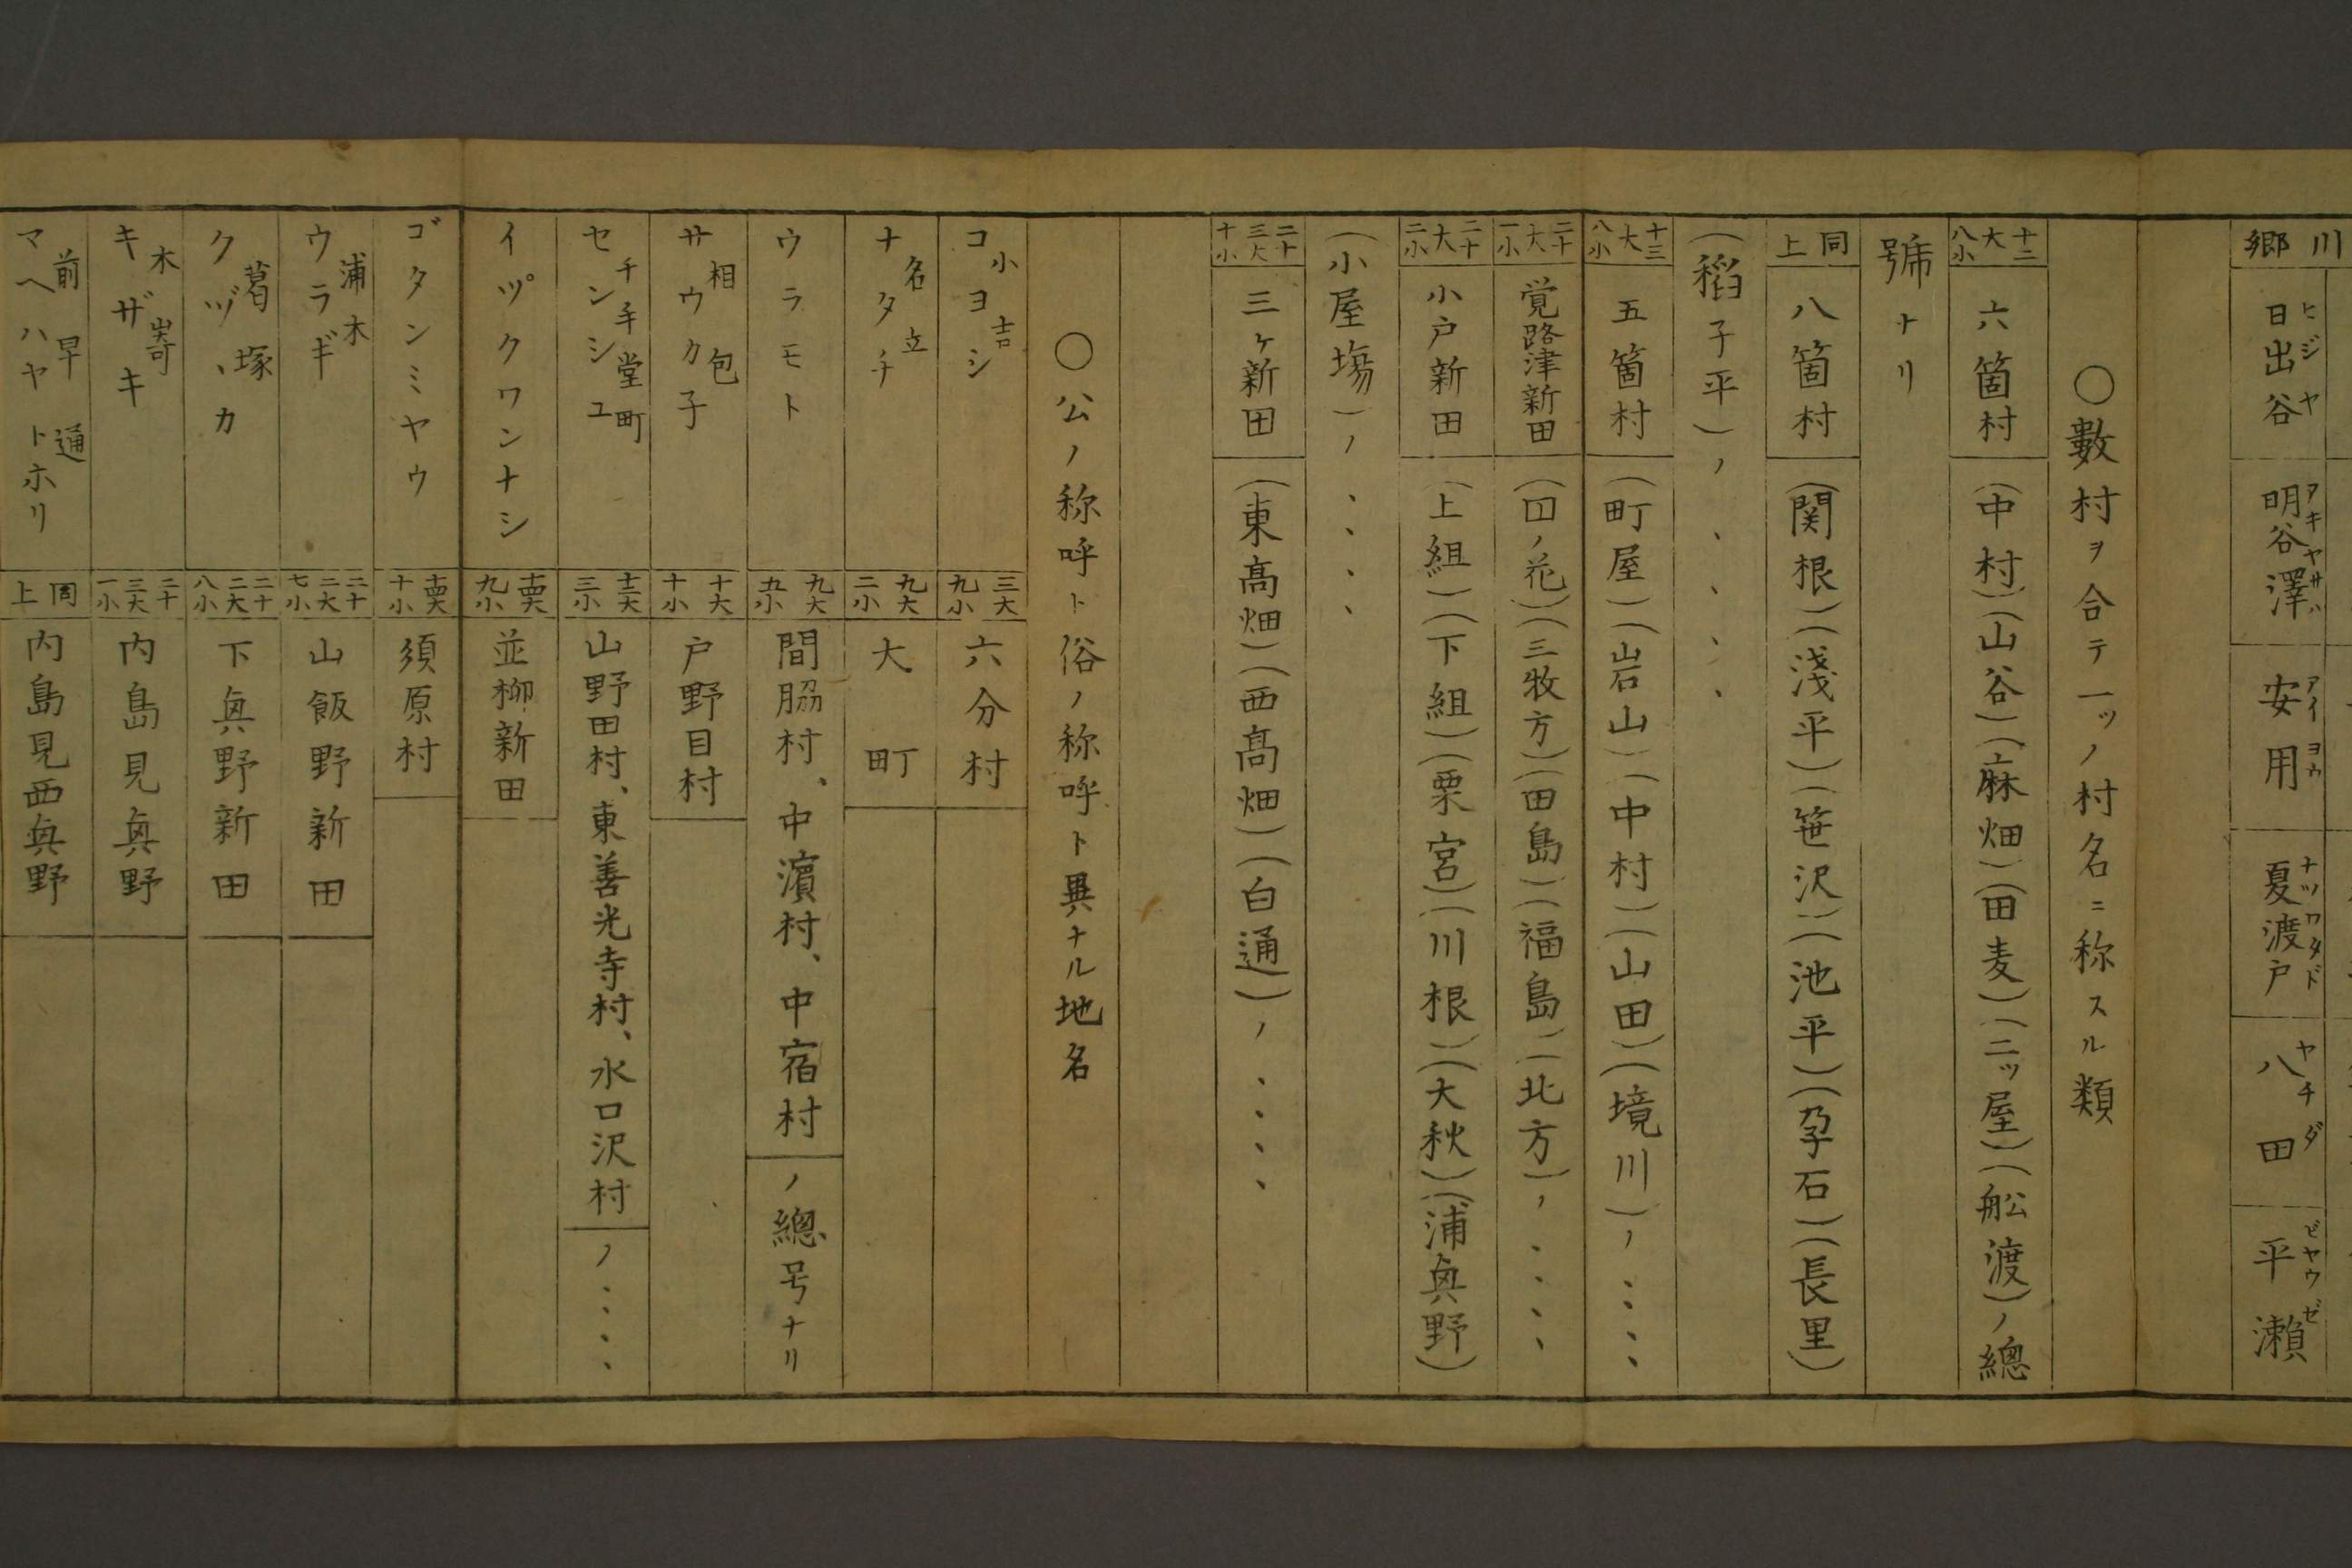 川郷 日出谷 明谷澤 安用 夏渡戸 八田 平瀬
ヒジヤ アキヤサハ アイヨウ ナツワタド ヤチダ ビヤウゼ
○數村ヲ合テ一ッノ村名ニ称スル類
十二大八小 六箇村 (中村)(山谷)(麻畑)(田麦)(二ッ屋)(舩渡)ノ總
號ナリ
同上 八箇村 (関根)(淺平)(笹沢)(池平)(孕石)(長里)
(稻子平)ノ、、、、
十三大八小 五箇村 (町屋)(岩山)(中村)(山田)(境川)ノ、、、、
二十大一小 覚路津新田 (囗ノ花)(三牧方)(田島)(福島)(北方)ノ、、、、
二十大二小 小戸新田 (上組)(下組)(栗宮)(川根)(大秋)(浦興野)
(小屋塲)ノ、、、、
二十三大十小 三ヶ新田 (東髙畑)(西髙畑)(白通)ノ、、、、
○公ノ称呼ト俗ノ称呼ト異ナル地名
小吉 コヨシ 三大九小 六分村
名立 ナタチ 九大二小 大町
ウラモト 九大五小 間脇村、中濱村、中宿村ノ總号ナリ
相包 サウカ子 十大十小 戸野目村
千手堂町 センシユ 十二大三小 山野田村、東善光寺村、水口沢村ノ、、、、
イヅクワンナシ 十四大九小 並柳新田
ゴタンミヤウ 十四大十小 須原村
浦木 ウラギ 二十二大七小 山飯野新田
葛塚 クヅヽカ 二十二大八小 下興野新田
木嵜 キザキ 二十三大一小 内島見興野
前早通 マヘハヤトホリ 同上 内島見西興野